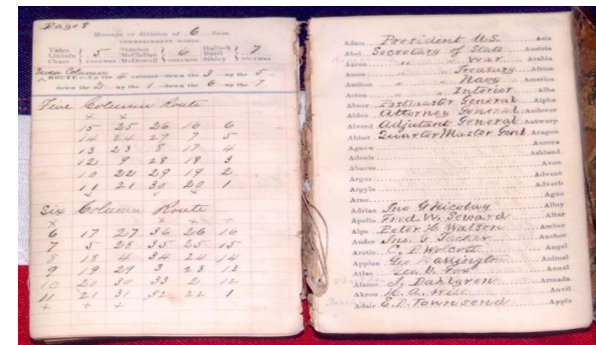 Page 8
Message or division of 6 lines.
COMMENCEMENT WORDS.
5 COLUMNS McDowell 6 COLUMNS Sibley 7
Seven Column
ROUTE:—Up the 4 column—down the 3—up the 5—
down the 2—up the 1—down the 6—up the 7
Five Column Route
15 25 26 16 6
14 24 27 7 5
13 23 8 17 4
12 9 28 18 3
10 22 29 19 2
11 21 30 20 1
Six Column Route
6 17 27 36 26 16
7 5 28 35 25 15
8 18 4 34 24 14
9 19 29 3 23 13
10 20 30 33 2 12
11 21 31 32 22 1
Adam President U.S. Asia
Abel Secretary of State Austria
Aaron " " War Arabia
" " Treasury Africa
" " Navy America
Acton " " Interior Alba
Abner Postmaster General Alpha
Alden Attorney General Andover
Alvord Adjutant General Antwerp
Abbot Quarter Master Genl. Aragon
Agnew Aurora
Adonis Ashland
Abacus Avon
Argos Advent
Argyle Adverb
Arno Ague
Adrian Jno G Nicolay Alloy
Apollo Fred W. Seward Altar
Alps Peter H Watson Amber
Andes Jno. F Tucker Anchor
C P Wolcott Angel
Appian Geo Harrington Animal
Atlas Fox Annual
Alamo J. Dahlgren Armada
Akron H. A. Wise Anvil
Adair E. D. Townsend Apple